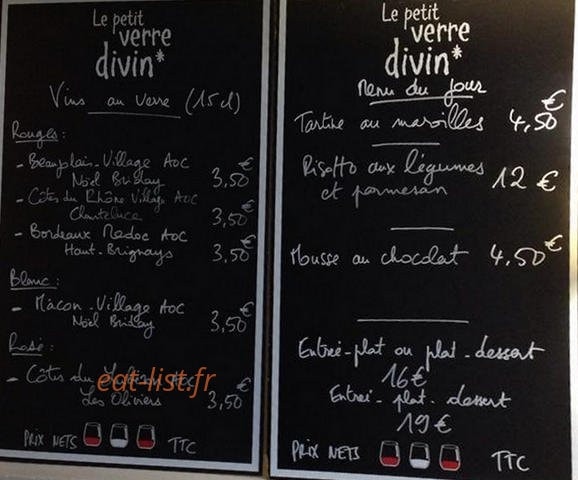 Le petit
verre
divin*
Vins au verre (15cl)
Rouges :
- Beaujolais-Village AOC
Noël Briday 3,50 €
- Côtes du Rhône Village AOC
Chanteluce 3,50 €
- Bordeaux Medoc AOC
Haut-Brignays 3,50 €
Blanc :
- Mâcon-Village AOC
Noël Briday 3,50 €
Rosé :
- Côtes du AOC
eat-list.fr
Les Oliviers 3,50 €
PRIX NETS TTC
Le petit
verre
divin*
Menu du jour
Tartine au maroilles 4,50 €
Risotto aux légumes
et parmesan 12 €
Mousse au chocolat 4,50 €
Entrée-plat ou plat-dessert
16 €
Entrée-plat-dessert
19 €
PRIX NETS TTC